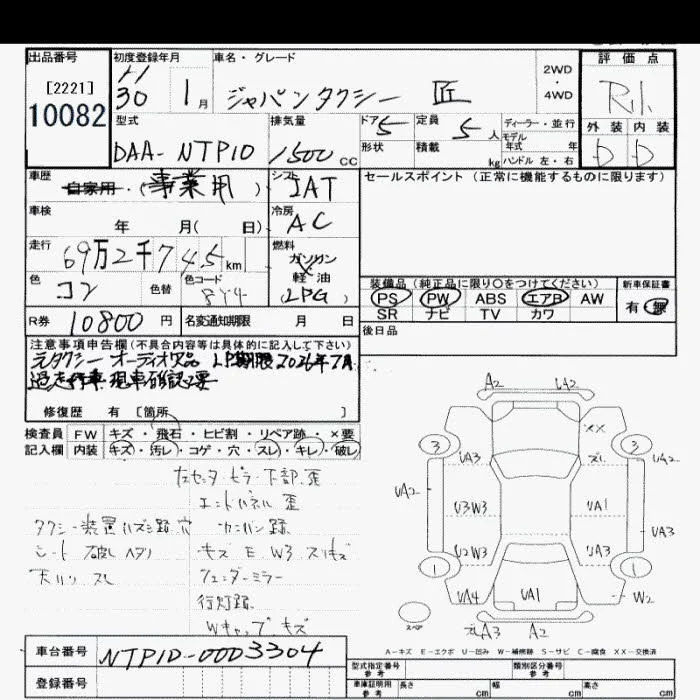 出品番号 初度登録年月 車名・グレード 評価点
[2221] 30 1月 ジャパンタクシー 匠 2WD・4WD R1
10082
型式 排気量 ドア 5 定員 5人 ディーラー・並行 外装 内装
DAA-NTP10 1500cc 形状 積載 kg モデル年式 年 ハンドル 左・右 D D
車歴 自家用・(事業用) シフト IAT セールスポイント(正常に機能するものに限ります)
車検 年 月(日) 冷房 AC
走行 69万2千745km 燃料 ガソリン 軽油 (LPG)
色 コン 色替 色コード 8Y4
装備品(純正品に限り○をつけてください) 新車保証書
PS PW ABS エアB AW 有・無
SR ナビ TV カワ
R券 10800円 名変通知期限 月 日 後日品
注意事項申告欄(不具合内容等は具体的に記入して下さい)
元タクシー オーディオ欠品 LP期限2026年7月
過走行車 現車確認要
修復歴 有 [箇所 ]
検査員 FW キズ・飛石・ヒビ割・リペア跡・×要
記入欄 内装 キズ・汚レ・コゲ・穴・スレ・キレ・破レ
左センターピラー下部 歪
エンドパネル 歪
タクシー装置ハズシ跡 穴 カンバン跡
シート 破レ ヘタリ キズ E W3 スリキズ
天バリ スレ フェンダーミラー
行灯跡
Wキャップキズ
A2 UA2
3 XX 3
UA3 ズレ UA2
UA2 U3W3 UA1 UA3
U2W3 UA3
1 1
UA4 UA1 W2
スペア ズレ A3 A2
A-キズ E-エクボ U-凹み W-補修跡 S-サビ C-腐食 XX-交換済
車台番号 NTP10-0003304
登録番号
型式指定番号 参考 類別区分番号 参考
車庫証明用 参考 長さ cm 幅 cm 高さ cm